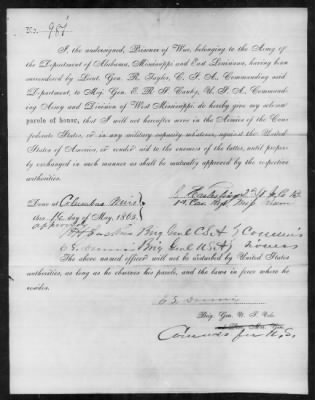 No. 951
I, the undersigned, Prisoner of War, belonging to the Army of
the Department of Alabama, Mississippi and East Louisiana, having been
surrendered by Lieut. Gen. R. Taylor, C. S. A., Commanding said
Department, to Maj. Gen. E. R. S. Canby, U. S. A., Command-
ing Army and Division of West Mississippi, do hereby give my solemn
parole of honor, that I will not hereafter serve in the Armies of the Con-
federate States, or in any military capacity whatever, against the United
States of America, or render aid to the enemies of the latter, until prop-
erly exchanged in such manner as shall be mutually approved by the respective
authorities.
Done at Columbus Miss
this 16 day of May, 1865.
Brig Genl C.S.A
Brig Genl U.S.
The above named officer will not be disturbed by United States
authorities, as long as he observes his parole, and the laws in force where he
resides.
Brig. Gen. U. S. Vols.
for U.S.